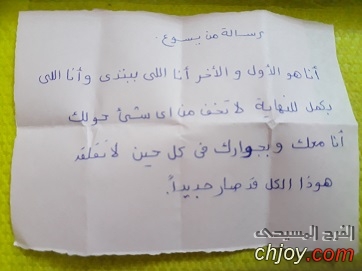 رسالة من يسوع.
أنا هو الأول و الأخر أنا اللى ببتدى وأنا اللى
بكمل للنهاية لا تخف من اى شئ حولك
أنا معك وبجوارك فى كل حين لا تقلق
هوذا الكل قد صار جديداً.
الفرح المسيحى
chjoy.com